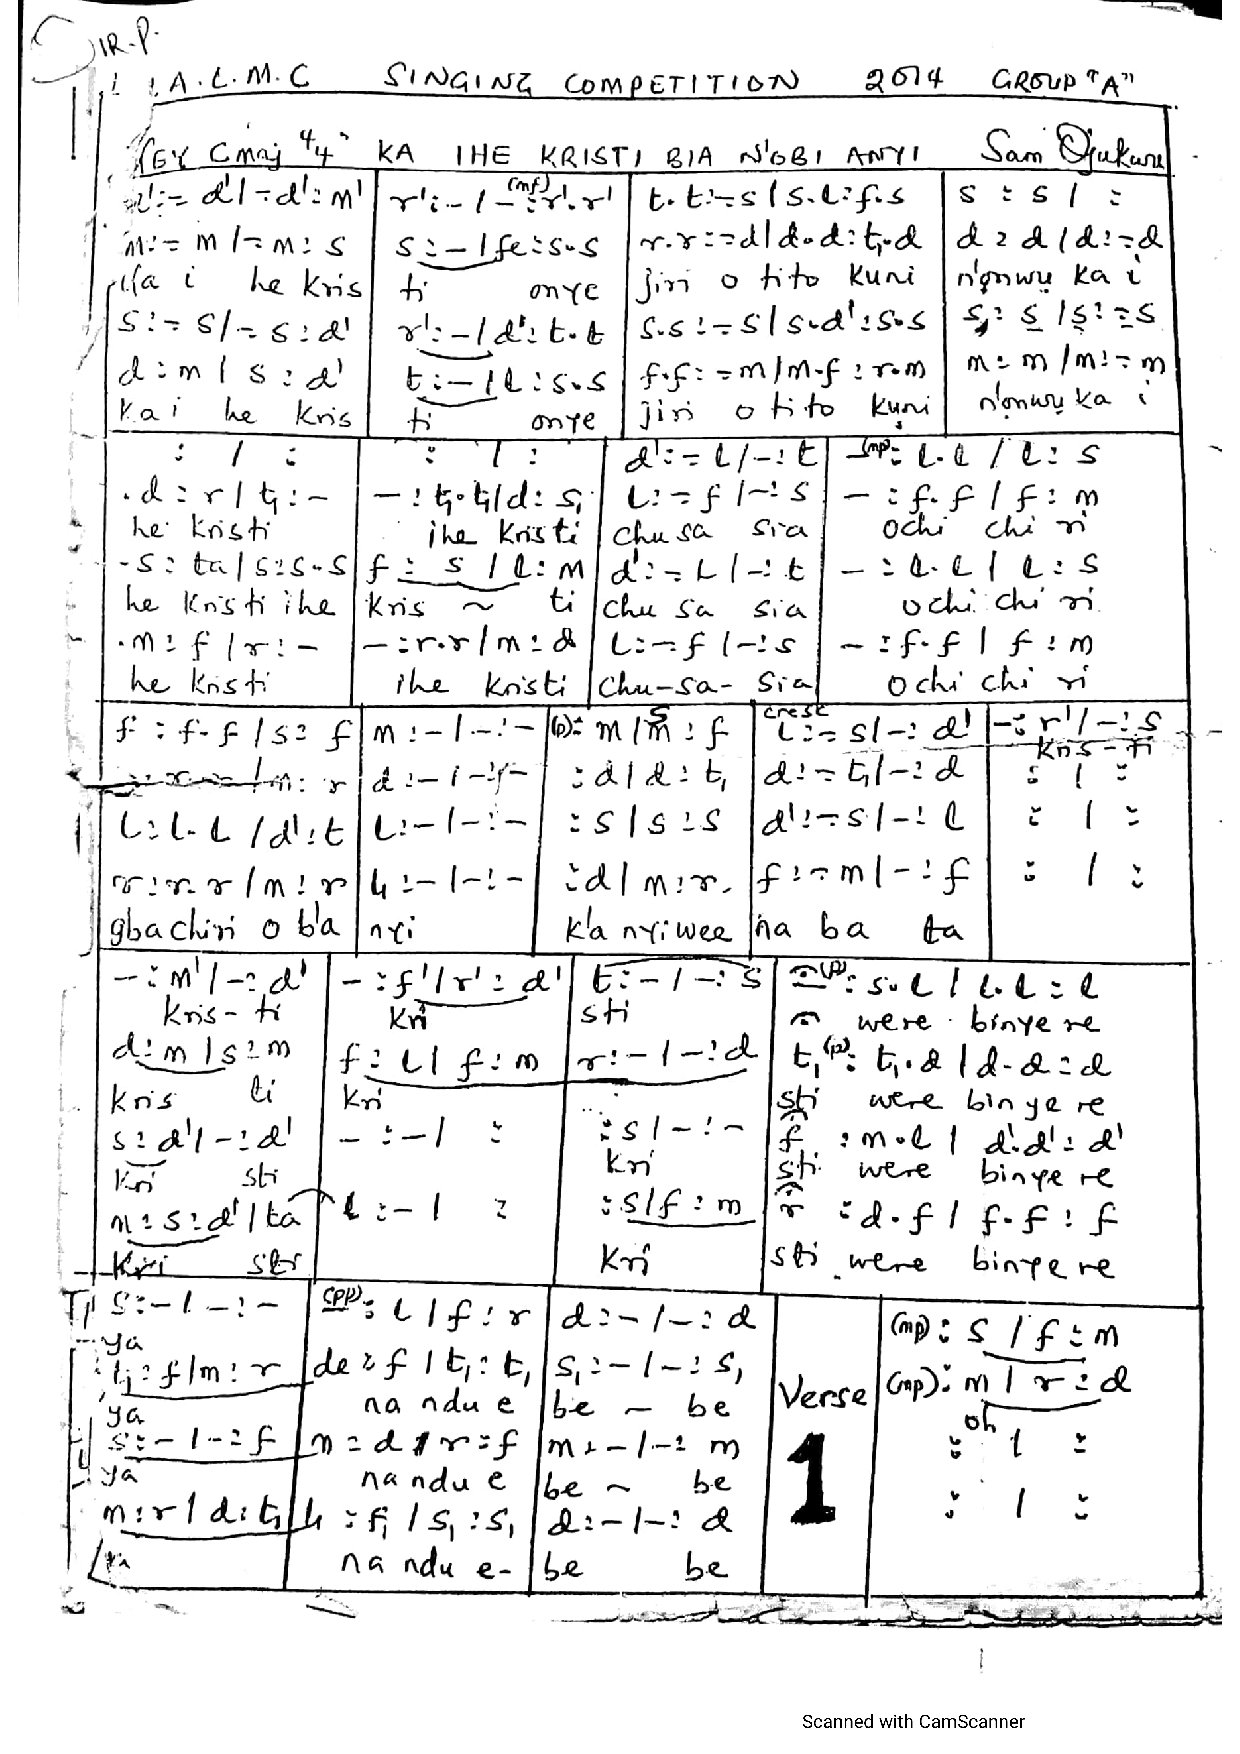 SIR.P.
A.L.M.C SINGING COMPETITION 2014 GROUP "A"
KEY Cmaj "4/4" KA IHE KRISTI BIA N'OBI ANYI Sam Ojukwu
r':-- d'/-- d':m' r':-/-(mf):r'.r' t.t:-- s/s.l:f.s s : s / :
m:-- m/-- m:s s:-/fe:s.s r.r:-- d/d.d:t₁.d d : d / d:-- d
Ka i he Kris ti onye jiri o ti to kuni n'onwu ka i
s:-- s/-- s:d' r':-/d':t.t s.s:-- s/s.d':s.s s₁: s / s:-- s
d:m/s:d' t:-/l:s.s f.f:-- m/m.f:r.m m: m / m:-- m
Ka i he Kris ti onye jiri o ti to kuni n'onwu ka i
: / : : / : d':-- l/-:t (mp): l.l / l: s
.d : r / t₁ :- - : t₁.t₁/d: s₁ l:-- f/-:s - : f.f / f : m
he Kristi ihe Kristi chu sa sia ochi chi ri
.s: ta/s:s.s f : s / l:m d':-- l/-:t - : l.l / l: s
he Kristi ihe Kris ~ ti chu sa sia ochi chi ri
.m: f / r : - - :r.r/m:d l:-- f/-:s - : f.f / f : m
he Kristi ihe Kristi chu-sa- sia ochi chi ri
f : f.f / s: f m:-/-:- (p): m/s : f cresc l:-- s/-: d' -: r'/-: s
Kris-ti
/m: r d:-/-:- :d/d:t₁ d:-- t₁/-:d : / :
l:l.l/d':t l:-/-:- :s/s:s d':-- s/-:l : / :
r:r.r/m:r l₁:-/-:- :d/m:r. f:-- m/-:f : / :
gbachiri o b'a nyi k'a nyi wee na ba ta
-:m'/-:d' -:f'/r':d' t:-/-:s (p): s.l / l.l : l
Kris-ti Kri sti were binye re
d:m/s:m f:l/f:m r:-/-:d t₁(p): t₁.d / d.d:d
Kris ti Kri sti were binye re
s:d'/-:d' -:-/ : :s/-:- f :m.l / d'.d':d'
Kri sti Kri sti were binye re
m:s:d'/ta l:-/ : :s/f:m r :d.f / f.f:f
Kri sti Kri sti were binye re
s:-/-:- (pp): l/f:r d:-/-:d (mp): s / f:m
ya
t₁:f/m:r de:f/t₁:t₁ s₁:-/-:s₁ Verse (mp): m / r:d
ya na ndu e be ~ be oh
s:-/-:f m:d/r:f m:-/-:m 1 : / :
ya na ndu e be ~ be
m:r/d:t₁ l₁:f₁/s₁:s₁ d:-/-:d : / :
ya na ndu e- be be
Scanned with CamScanner